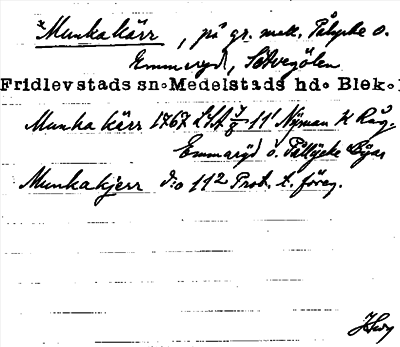 *Munkakärr, på gr. mell. Pålycke o.
Emmaryd, Sätvegölen
Fridlevstads sn. Medelstads hd. Blek.
Munka kärr 1767 LSA 7/8 11' Nyman K Råg.
Emmaryd o. Pållycke Byar
Munkakjerr d:o 11² Prot. t. föreg.